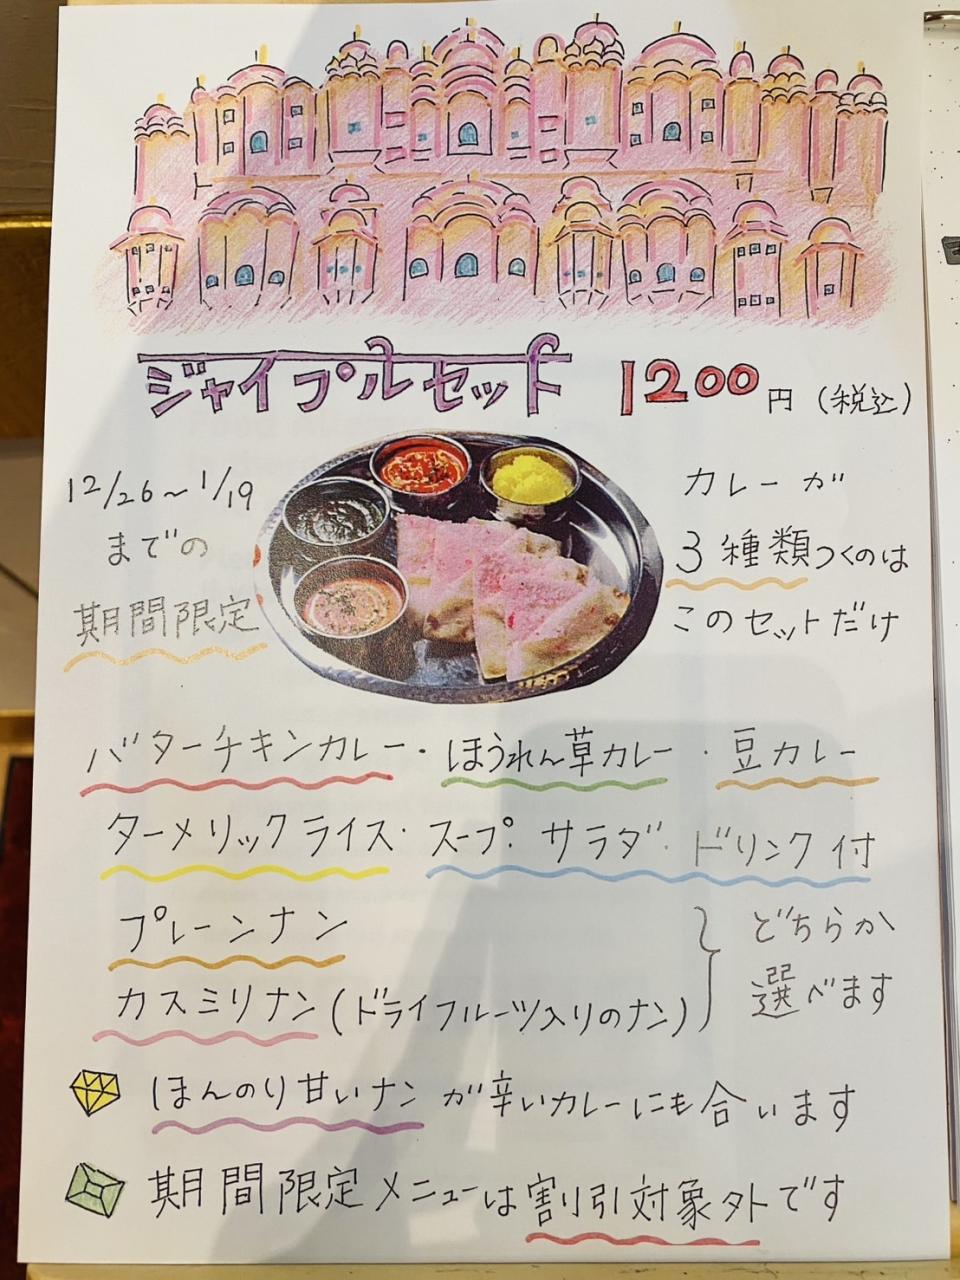 ジャイプルセット 1200円(税込)
12/26〜1/19
までの
期間限定
カレーが
3種類つくのは
このセットだけ
バターチキンカレー・ほうれん草カレー・豆カレー
ターメリックライス・スープ・サラダ・ドリンク付
プレーンナン
カスミリナン(ドライフルーツ入りのナン)
どちらか
選べます
ほんのり甘いナンが辛いカレーにも合います
期間限定メニューは割引対象外です